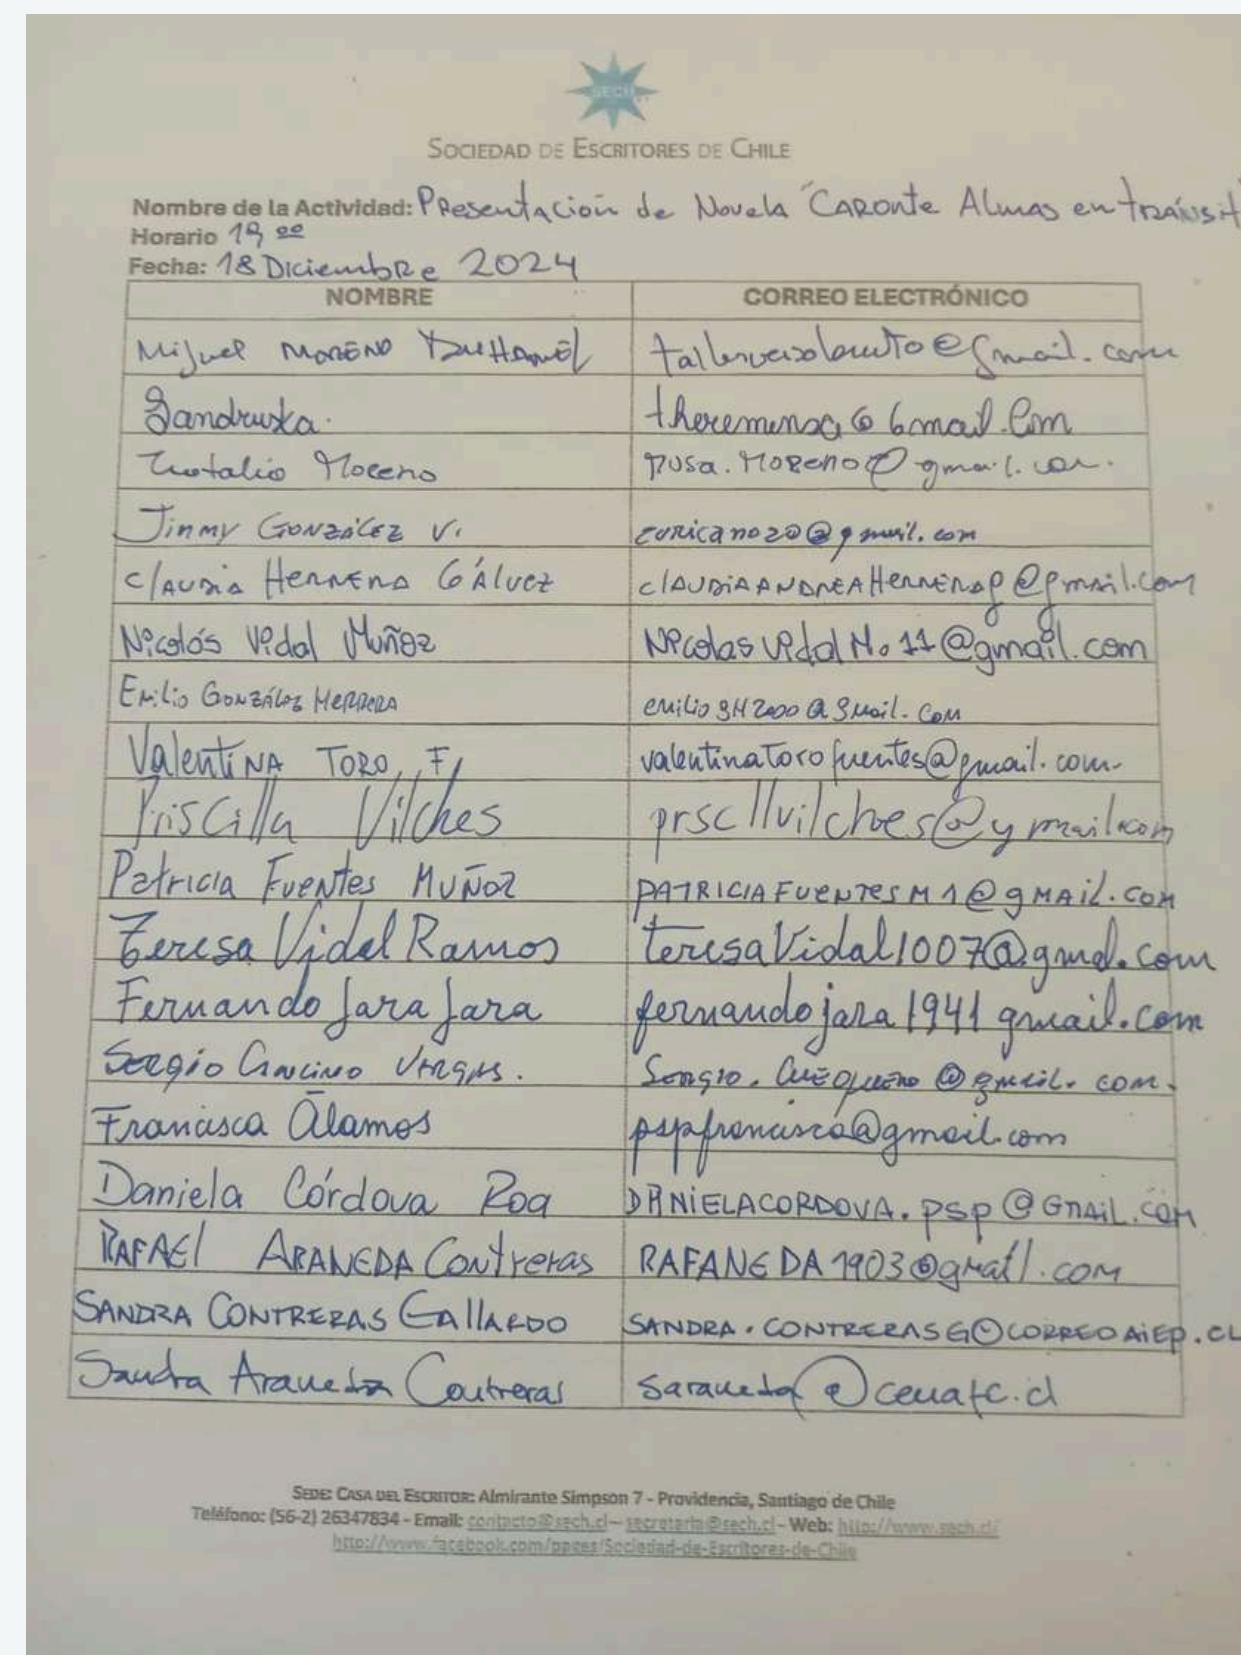 SECH
SOCIEDAD DE ESCRITORES DE CHILE
Nombre de la Actividad: Presentación de Novela "CARONTE Almas en tránsit
Horario 19 00
Fecha: 18 Diciembre 2024
NOMBRE CORREO ELECTRÓNICO
Miguel MORENO DUHAMEL @gmail.com
theremensa@Gmail.Com
Moreno rusa.Moreno@gmail.com.
Jinmy GONZÁLEZ V. curicano20@gmail.com
Claudia HERRERA GÁLVEZ claudiaandreaherrerag@gmail.com
Nicolás Vidal Muñoz NicolasVidalM.11@gmail.com
Emilio GONZÁLEZ HERRERA emiliogH2000@gmail.com
Valentina TORO F. valentinatorofuentes@gmail.com
Priscilla Vilches prscllvilches@ymail.com
Patricia Fuentes Muñoz PATRICIAFUENTESM1@gmail.com
Teresa Vidal Ramos teresaVidal1007@gmal.com
Fernando Jara Jara fernandojara1941 gmail.com
Sergio Cancino VARGAS. @gmail.com.
Francisca Álamos pspfrancisca@gmail.com
Daniela Córdova Roa DANIELACORDOVA.psp@GmAiL.com
RAFAEl ARANEDA Contreras RAFANEDA1903@gmail.com
SANDRA CONTRERAS GALLARDO SANDRA.CONTRERASG@CORREOAIEP.CL
Sandra Araneda Contreras saraneda@cenafc.cl
SEDE: CASA DEL ESCRITOR: Almirante Simpson 7 - Providencia, Santiago de Chile
Teléfono: (56-2) 26347834 - Email: contacto@sech.cl – secretaria@sech.cl - Web: http://www.sech.cl/
http://www.facebook.com/pages/Sociedad-de-Escritores-de-Chile